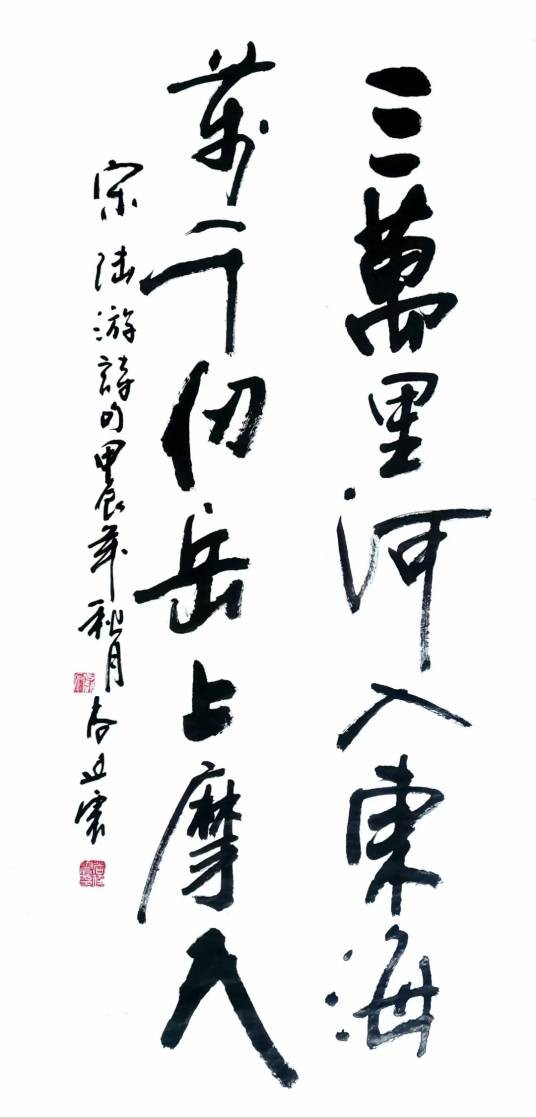 三萬里河入東海
萬千仞岳上摩天
宋陸游詩句甲辰年秋月